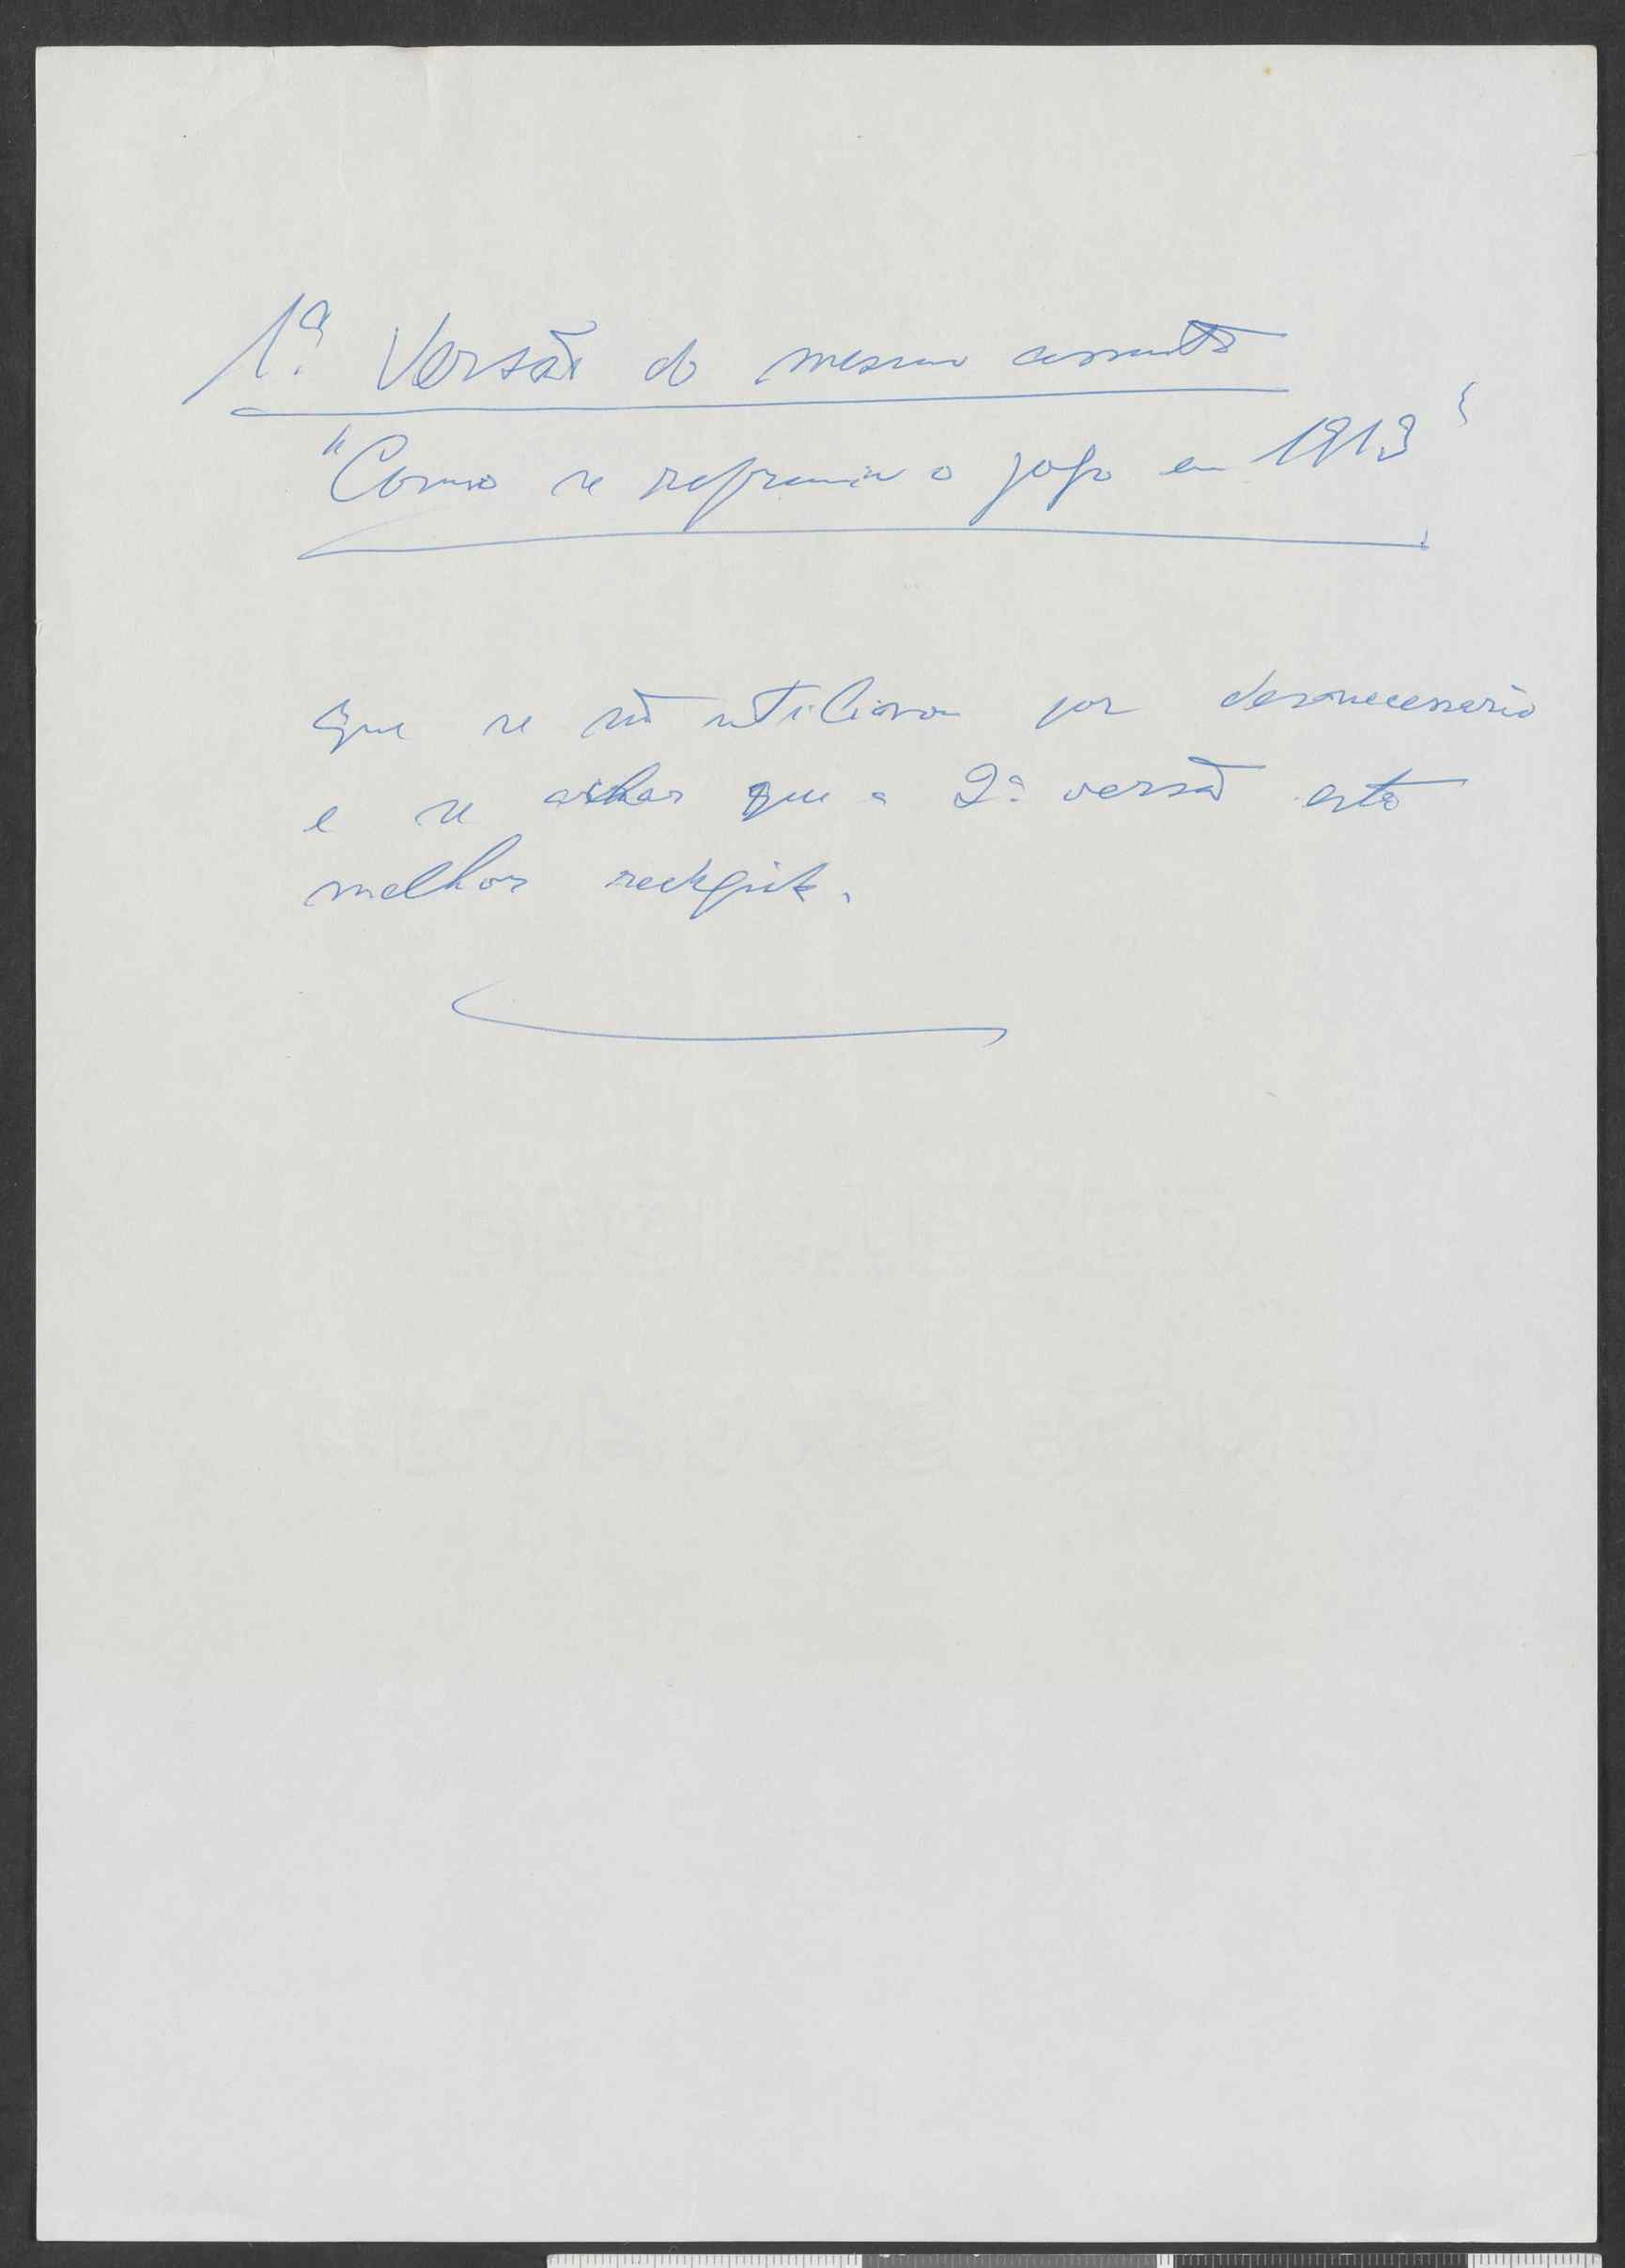 1ª. Versão do mesmo assunto
"Como se reprimia o jogo em 1913"
que se não utilizou por desnecessario
e se achar que a 2ª versão está
melhor redigida.